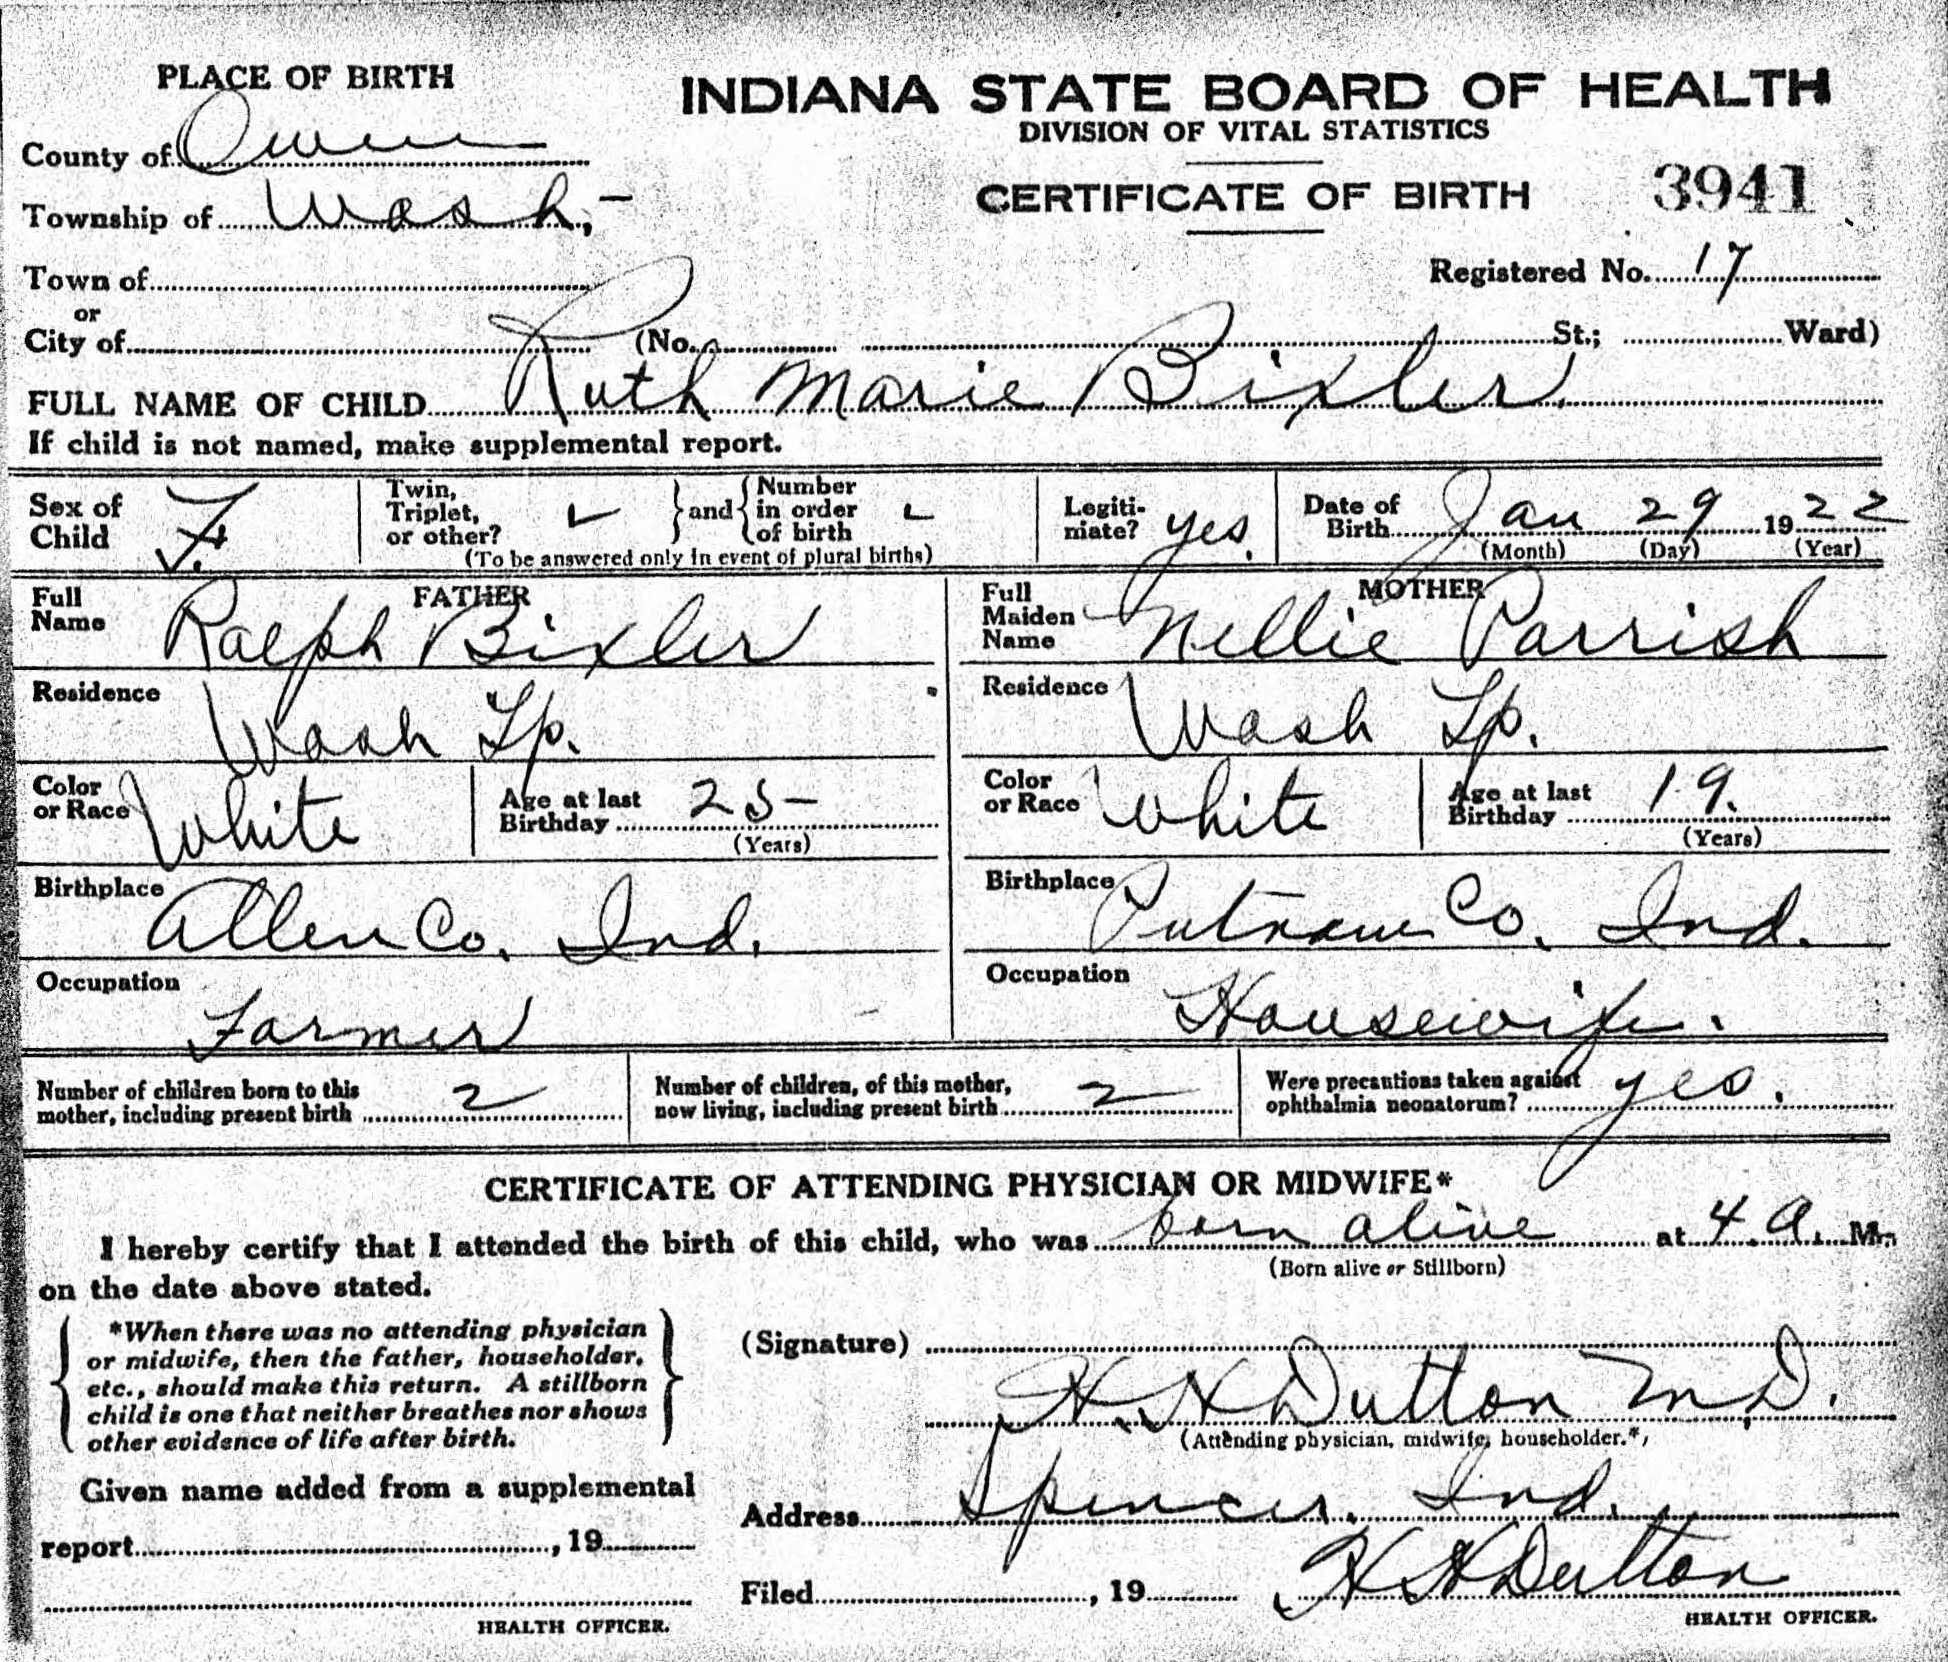 PLACE OF BIRTH
INDIANA STATE BOARD OF HEALTH
DIVISION OF VITAL STATISTICS
County of Owen
CERTIFICATE OF BIRTH 3941
Township of Wash,-
Town of
Registered No. 17
or
City of (No. St.; Ward)
FULL NAME OF CHILD Ruth Marie Bixler
If child is not named, make supplemental report.
Sex of Child F.
Twin, Triplet, or other? and Number in order of birth
(To be answered only in event of plural births)
Legiti-mate? yes.
Date of Birth Jan 29 1922
(Month) (Day) (Year)
FATHER
Full Name Ralph Bixler
MOTHER
Full Maiden Name Nellie Parrish
Residence Wash Tp.
Residence Wash Tp.
Color or Race White
Age at last Birthday 25
(Years)
Color or Race White
Age at last Birthday 19.
(Years)
Birthplace Allen Co. Ind.
Birthplace Putnam Co. Ind.
Occupation Farmer
Occupation Housewife.
Number of children born to this mother, including present birth 2
Number of children, of this mother, now living, including present birth 2
Were precautions taken against ophthalmia neonatorum? yes.
CERTIFICATE OF ATTENDING PHYSICIAN OR MIDWIFE*
I hereby certify that I attended the birth of this child, who was born alive at 4 a. M.
(Born alive or Stillborn)
on the date above stated.
*When there was no attending physician
or midwife, then the father, householder,
etc., should make this return. A stillborn
child is one that neither breathes nor shows
other evidence of life after birth.
(Signature)
H. H Dutton M.D.
(Attending physician, midwife, householder.*)
Given name added from a supplemental
report , 19
HEALTH OFFICER.
Address Spencer, Ind.
Filed , 19 H H Dutton
HEALTH OFFICER.